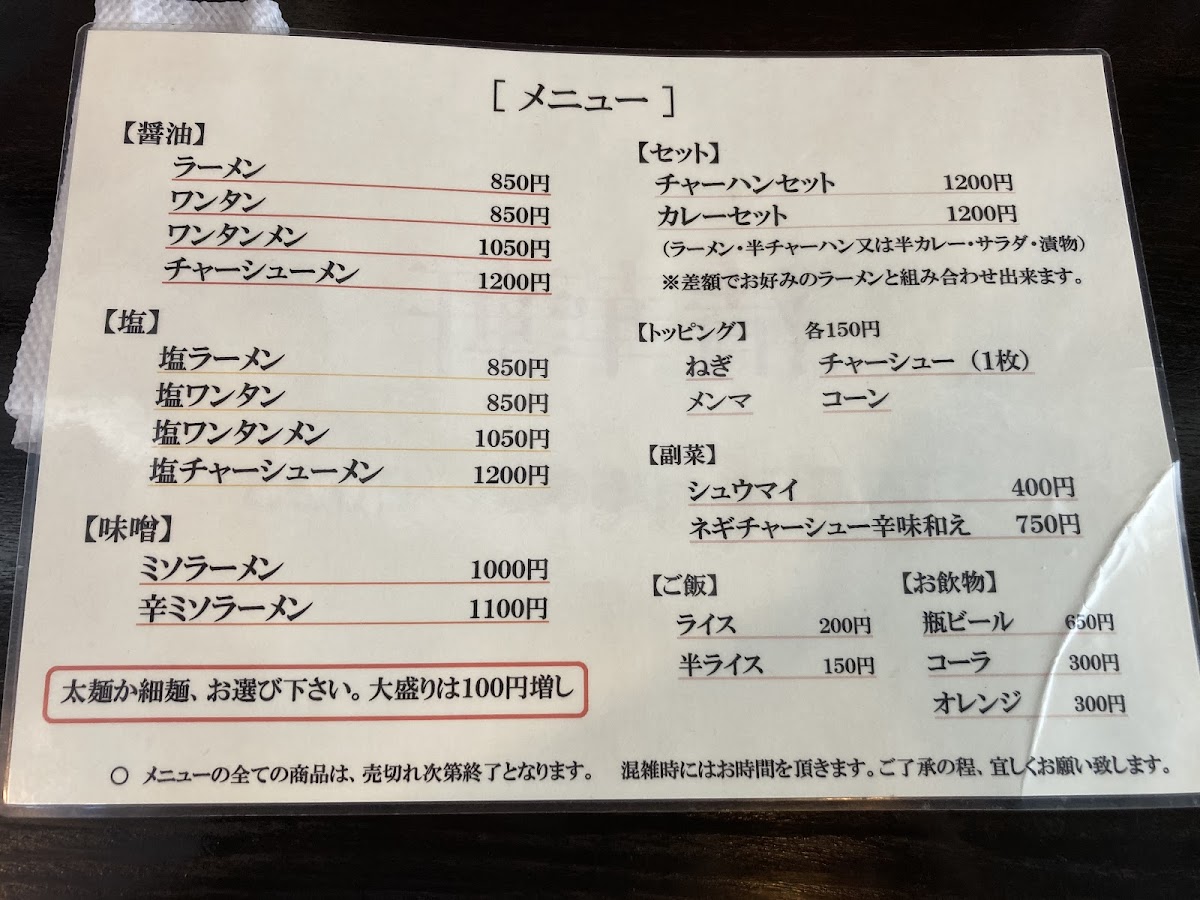 [ メニュー ]
【醤油】
ラーメン 850円
ワンタン 850円
ワンタンメン 1050円
チャーシューメン 1200円
【塩】
塩ラーメン 850円
塩ワンタン 850円
塩ワンタンメン 1050円
塩チャーシューメン 1200円
【味噌】
ミソラーメン 1000円
辛ミソラーメン 1100円
太麺か細麺、お選び下さい。大盛りは100円増し
【セット】
チャーハンセット 1200円
カレーセット 1200円
（ラーメン・半チャーハン又は半カレー・サラダ・漬物）
※差額でお好みのラーメンと組み合わせ出来ます。
【トッピング】 各150円
ねぎ チャーシュー（1枚）
メンマ コーン
【副菜】
シュウマイ 400円
ネギチャーシュー辛味和え 750円
【ご飯】
ライス 200円
半ライス 150円
【お飲物】
瓶ビール 650円
コーラ 300円
オレンジ 300円
○ メニューの全ての商品は、売切れ次第終了となります。 混雑時にはお時間を頂きます。ご了承の程、宜しくお願い致します。